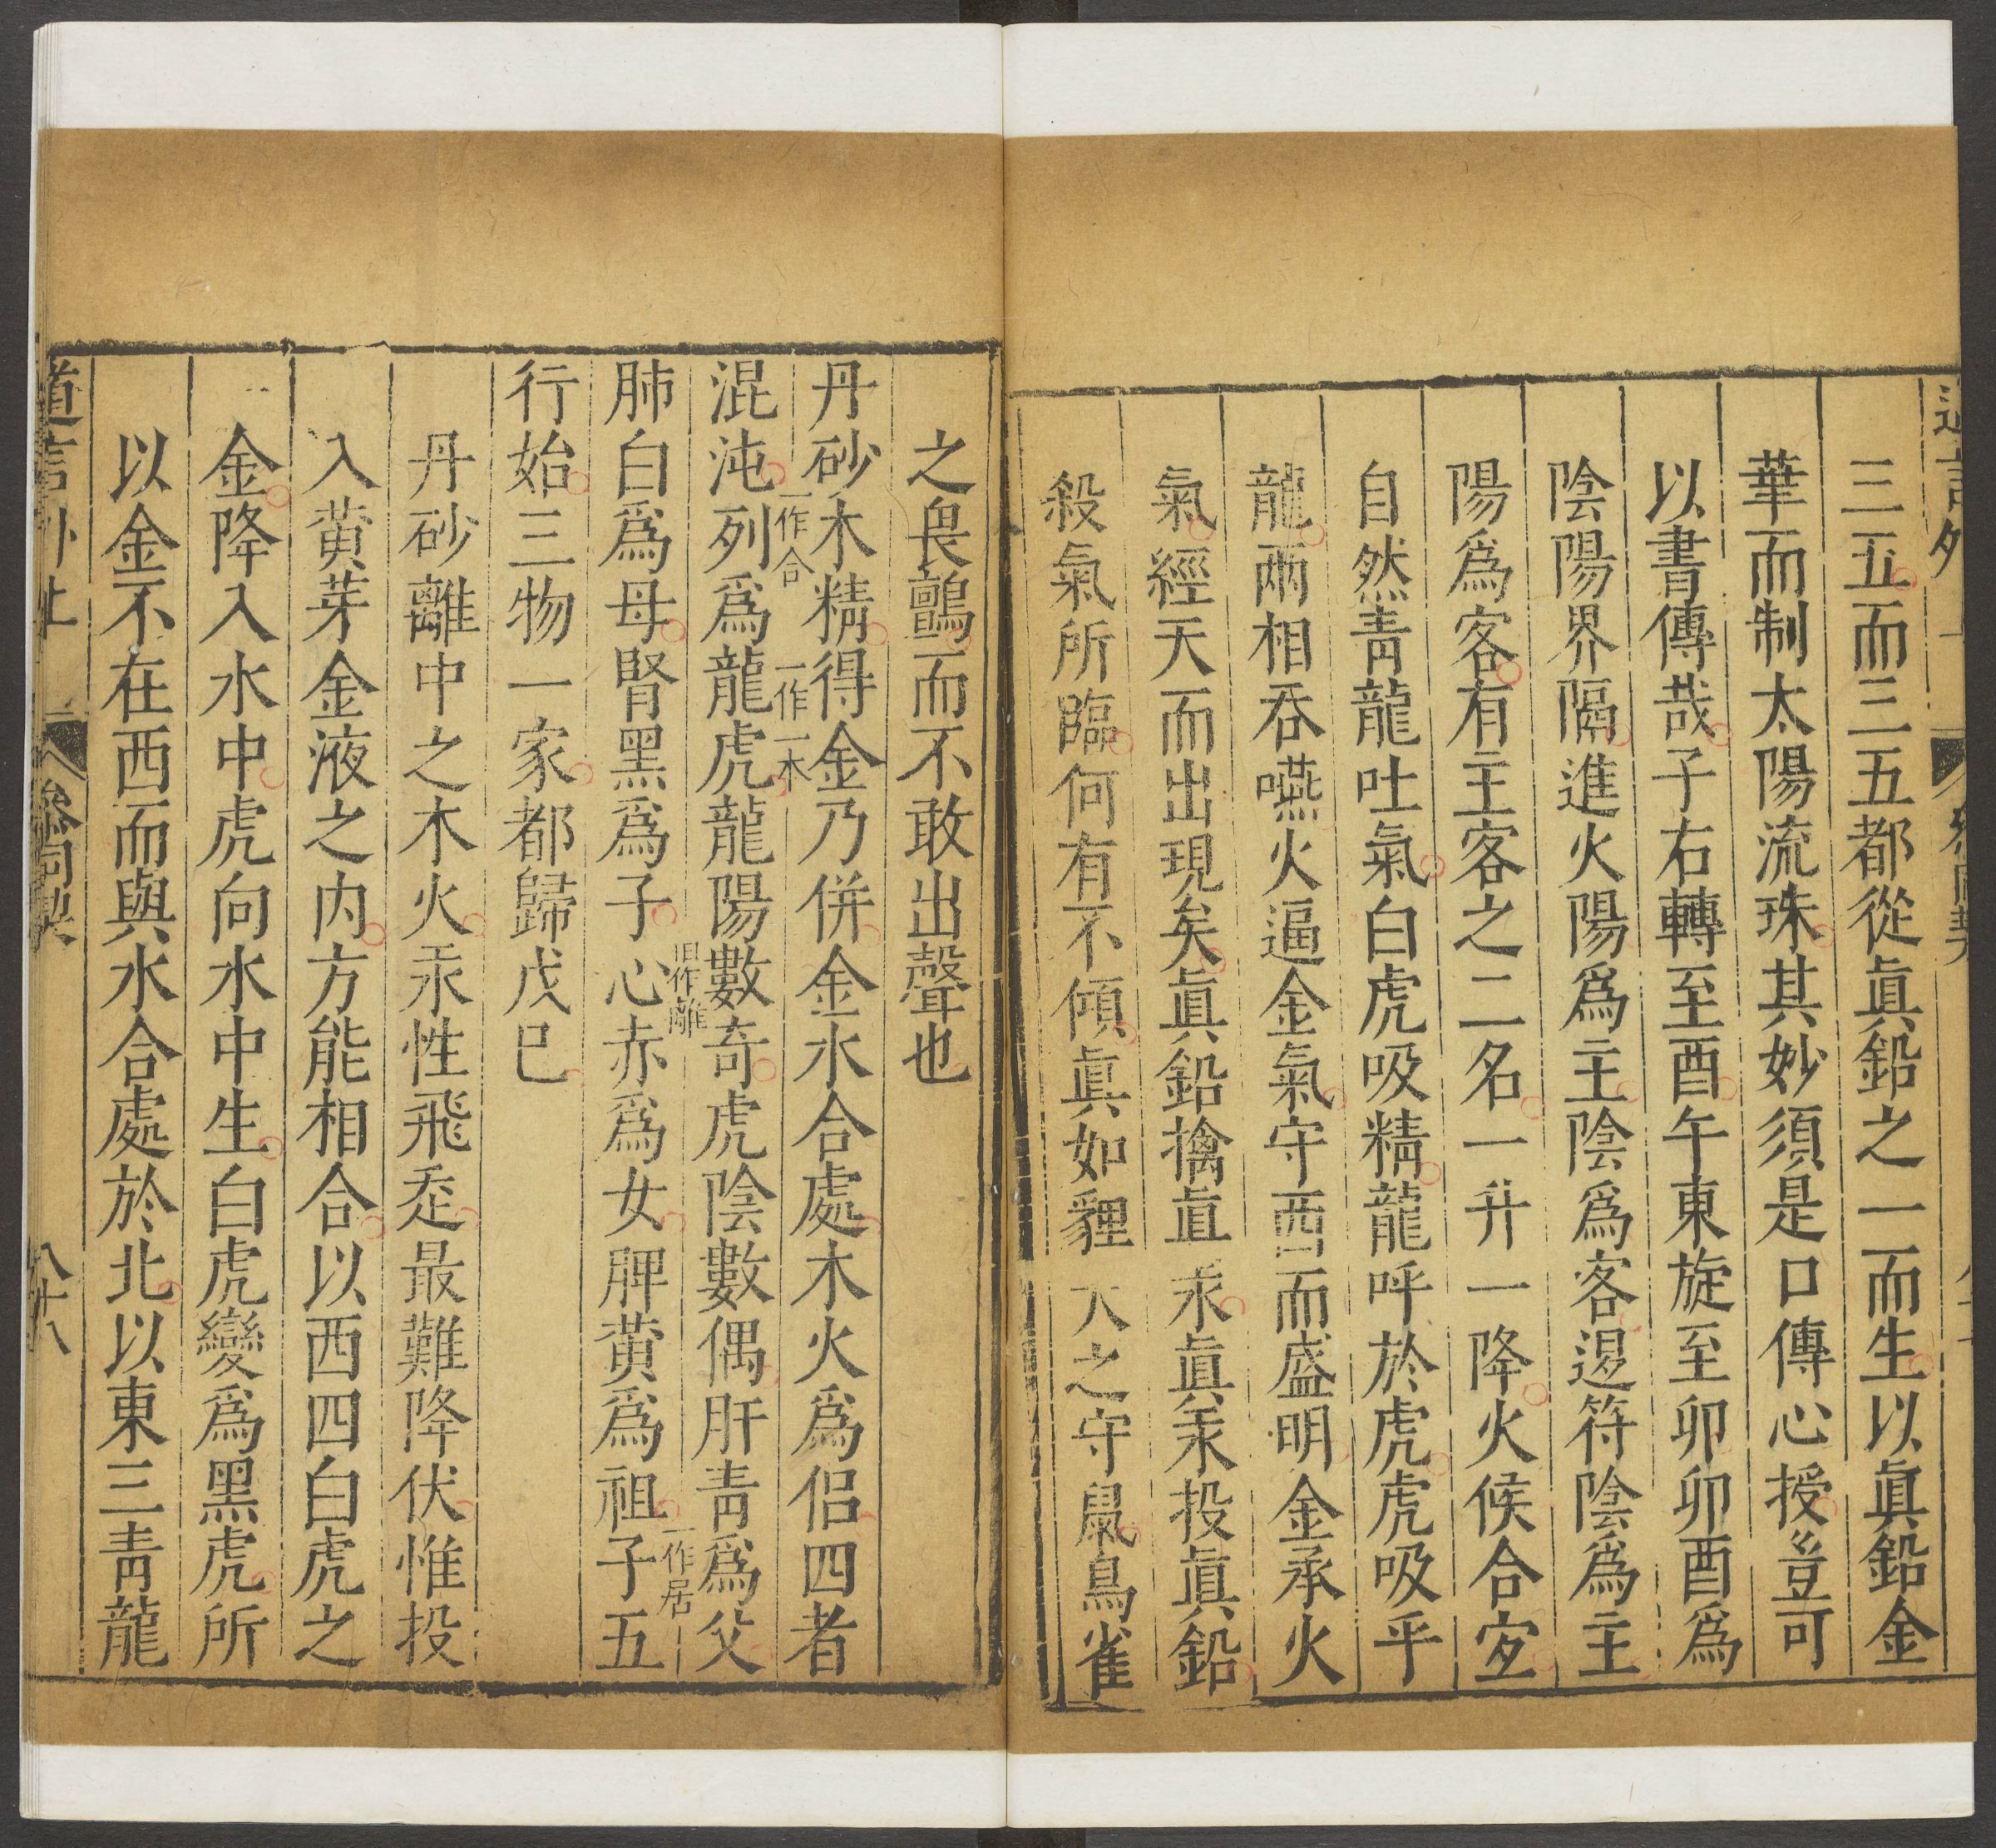 三五而三五都從眞鉛之一而生以眞鉛金
華而制太陽流珠其妙須是口傳心授豈可
以書傳哉子右轉至酉午東旋至卯卯酉爲
陰陽界隔進火陽爲主陰爲客退符陰爲主
陽爲客有主客之二名一升一降火候合宜
自然青龍吐氣白虎吸精龍呼於虎虎吸乎
龍兩相吞嚥火逼金氣守西而盛明金承火
氣經天而出現矣眞鉛擒眞汞眞汞投眞鉛
殺氣所臨何有不傾眞如貍犬之守鼠鳥雀
之畏鸇而不敢出聲也
丹砂木精得金乃併金水合處木火爲侶四者
一作合 一作木
混沌列爲龍虎龍陽數奇虎陰數偶肝青爲父
肺白爲母腎黑爲子心赤爲女脾黄爲祖子五
旧作離 一作居
行始三物一家都歸戊巳
丹砂離中之木火汞性飛走最難降伏惟投
入黄芽金液之内方能相合以西四白虎之
金降入水中虎向水中生白虎變爲黑虎所
以金不在西而與水合處於北以東三青龍
道言外 上 參同契 八十八